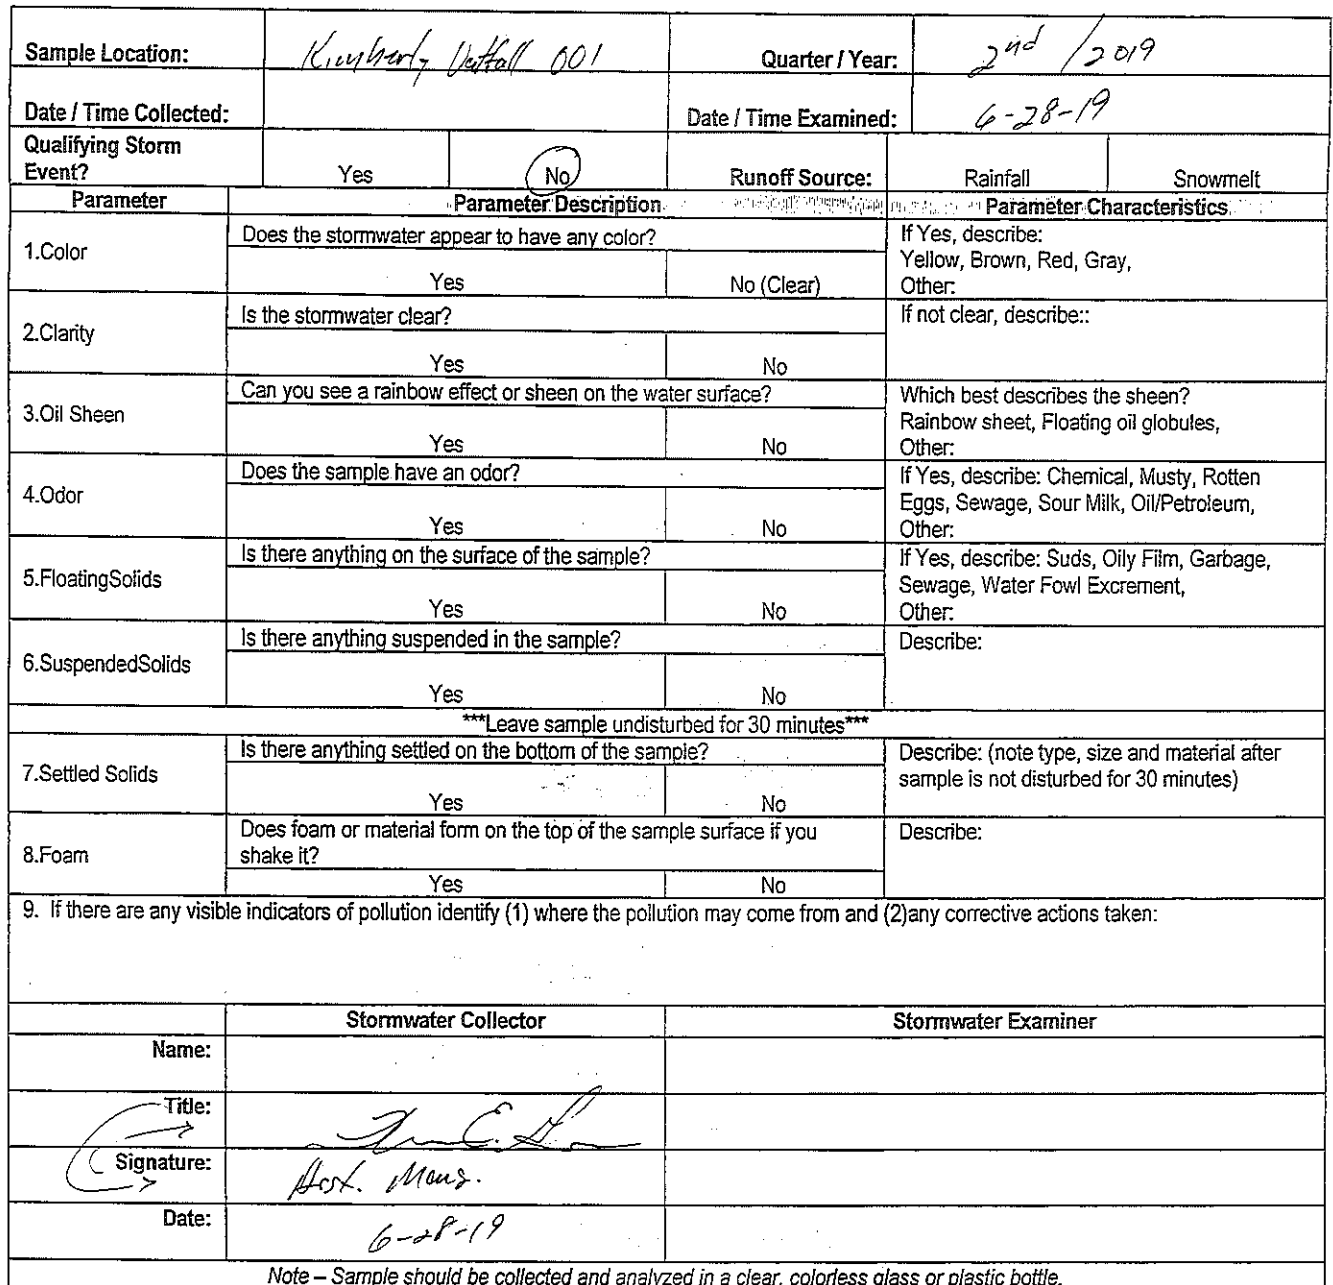 Sample Location: Kimberly Outfall 001 Quarter / Year: 2nd / 2019
Date / Time Collected: Date / Time Examined: 6-28-19
Qualifying Storm
Event? Yes No Runoff Source: Rainfall Snowmelt
Parameter Parameter Description Parameter Characteristics
1.Color
Does the stormwater appear to have any color?
Yes No (Clear)
If Yes, describe:
Yellow, Brown, Red, Gray,
Other:
2.Clarity
Is the stormwater clear?
Yes No
If not clear, describe::
3.Oil Sheen
Can you see a rainbow effect or sheen on the water surface?
Yes No
Which best describes the sheen?
Rainbow sheet, Floating oil globules,
Other:
4.Odor
Does the sample have an odor?
Yes No
If Yes, describe: Chemical, Musty, Rotten
Eggs, Sewage, Sour Milk, Oil/Petroleum,
Other:
5.FloatingSolids
Is there anything on the surface of the sample?
Yes No
If Yes, describe: Suds, Oily Film, Garbage,
Sewage, Water Fowl Excrement,
Other:
6.SuspendedSolids
Is there anything suspended in the sample?
Yes No
Describe:
***Leave sample undisturbed for 30 minutes***
7.Settled Solids
Is there anything settled on the bottom of the sample?
Yes No
Describe: (note type, size and material after
sample is not disturbed for 30 minutes)
8.Foam
Does foam or material form on the top of the sample surface if you
shake it?
Yes No
Describe:
9. If there are any visible indicators of pollution identify (1) where the pollution may come from and (2)any corrective actions taken:
Stormwater Collector Stormwater Examiner
Name:
Title:
Signature: Asst. Mang.
Date: 6-28-19
Note – Sample should be collected and analyzed in a clear, colorless glass or plastic bottle.